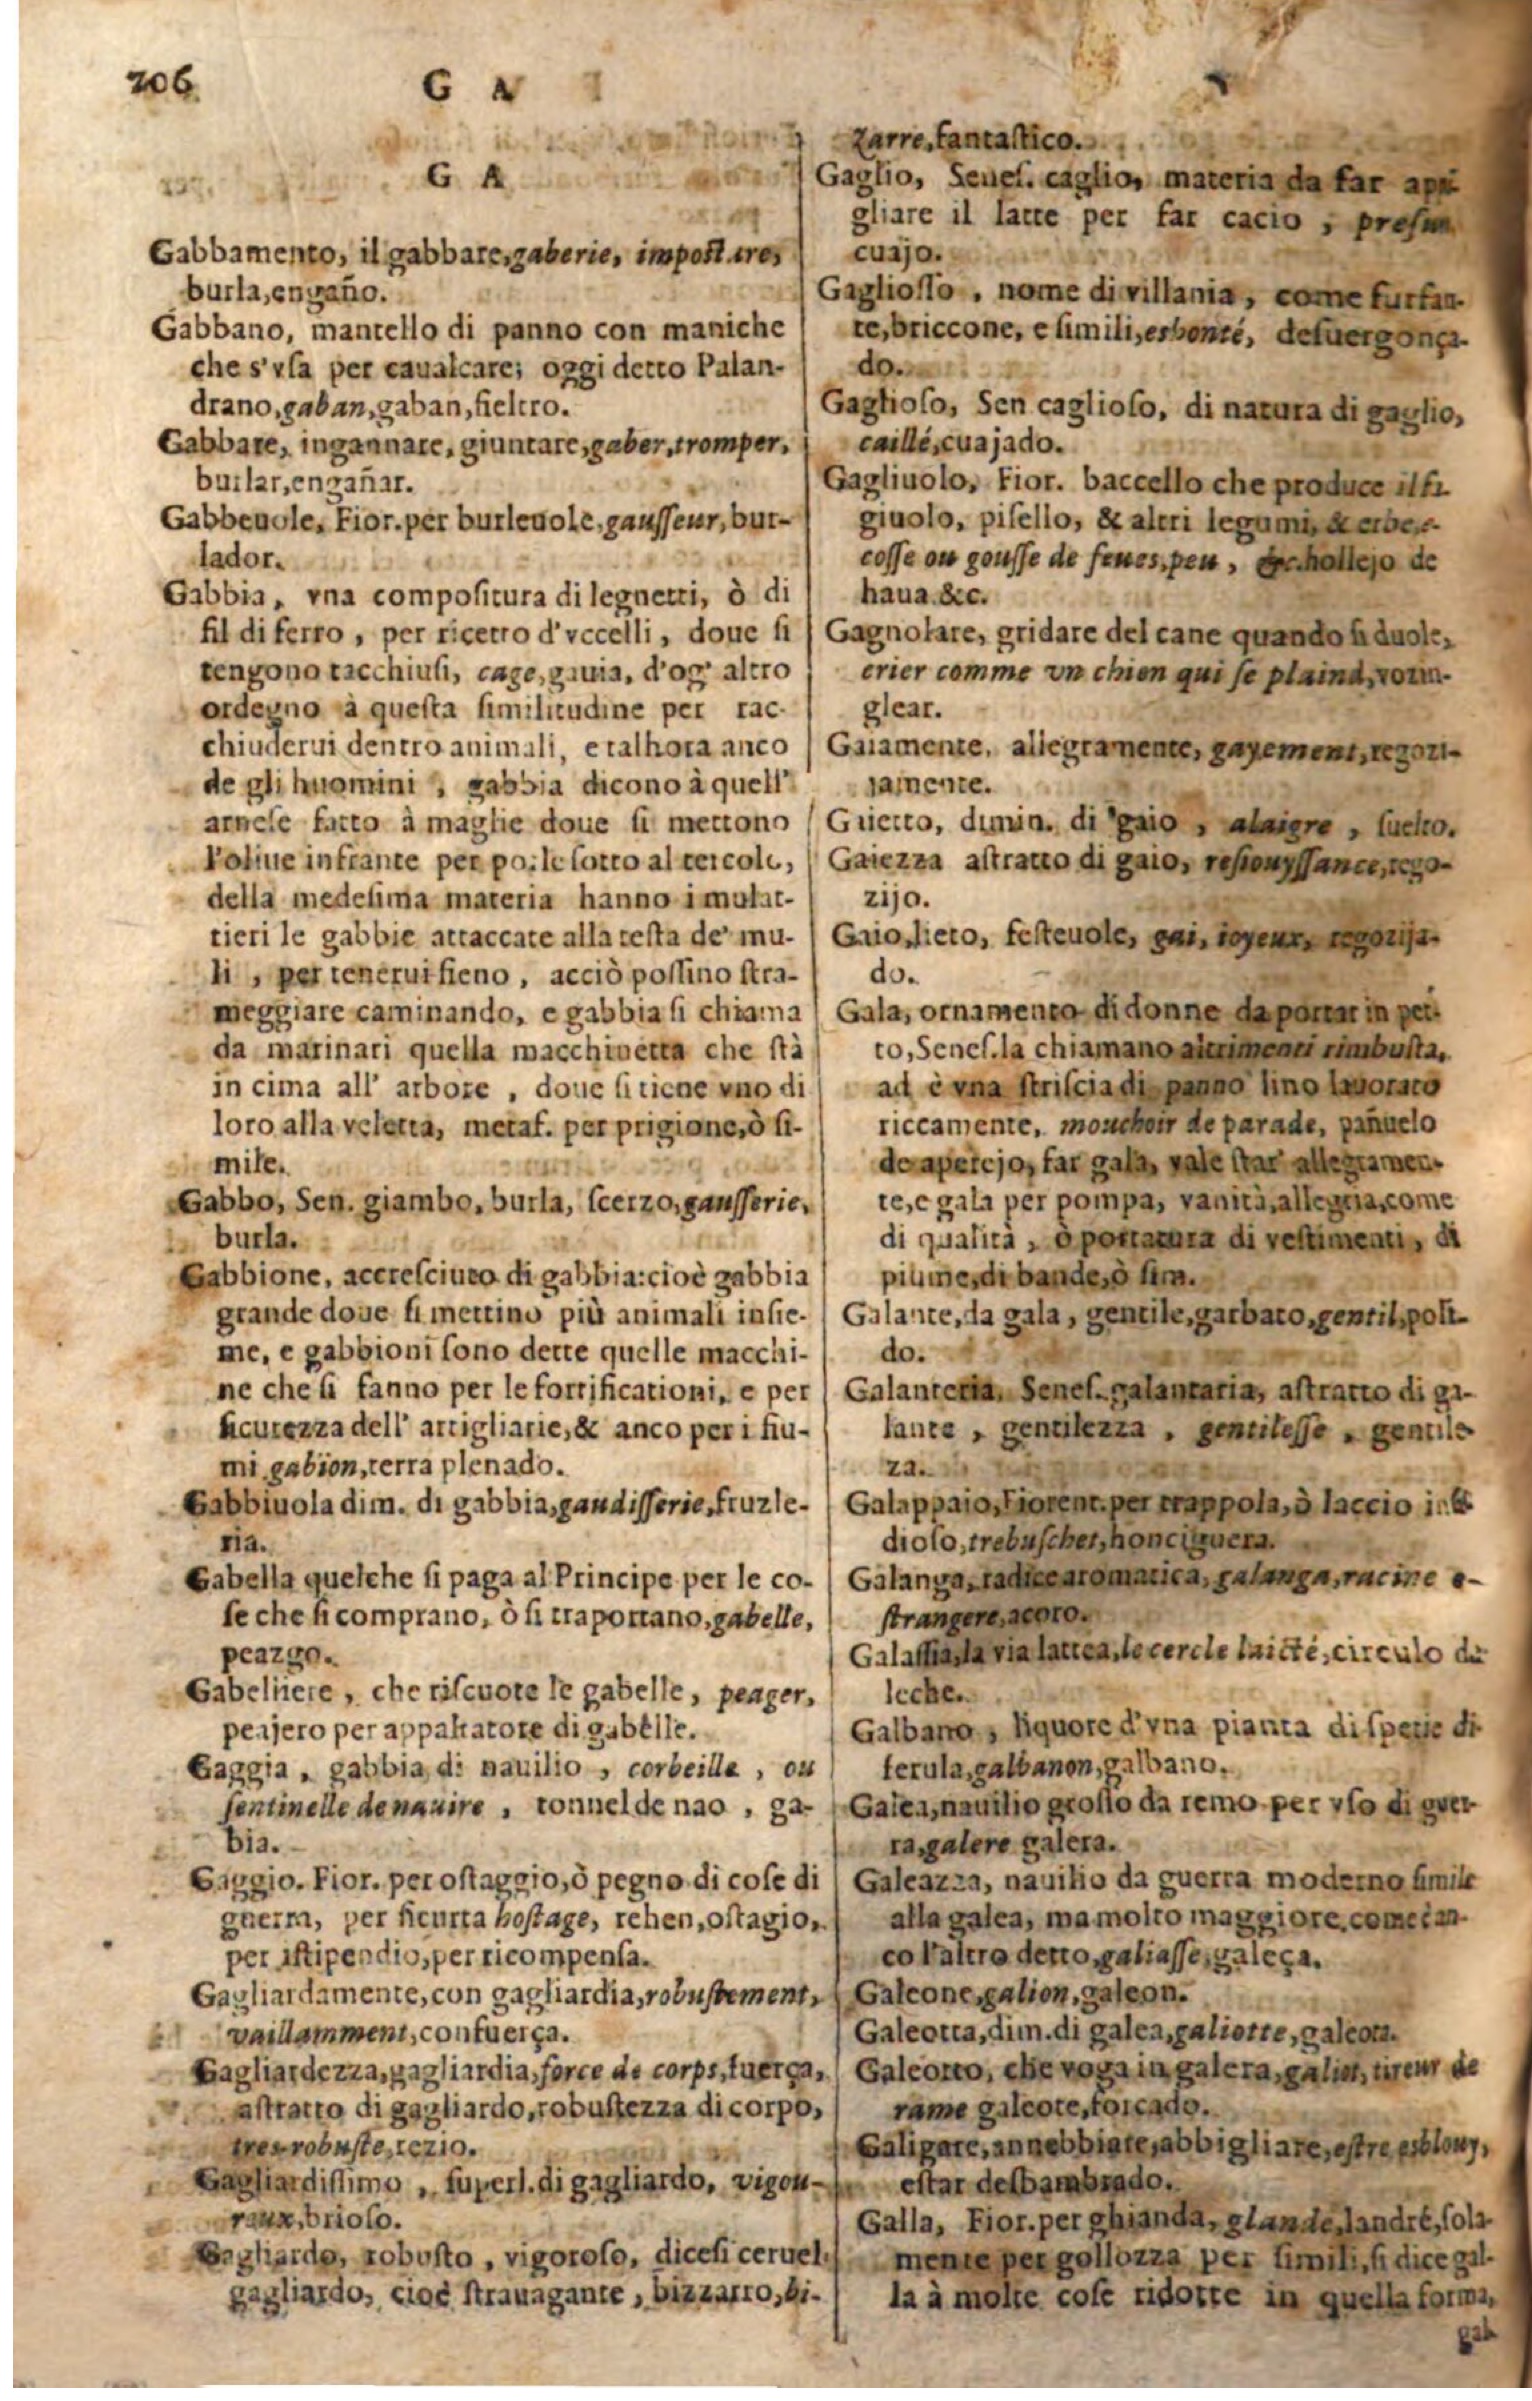 206
G A
G A
Gabbamento, il gabbare, gaberie, imposture,
burla, engaño.
Gabbano, mantello di panno con maniche
che s'vſa per caualcare; oggi detto Palan-
drano, gaban, gaban, fieltro.
Gabbare, ingannare, giuntare, gaber, tromper,
burlar, engañar.
Gabbeuole, Fior. per burleuole, gauſſeur, bur-
lador.
Gabbia, vna compoſitura di legnetti, ò di
fil di ferro, per ricetto d'vccelli, doue ſi
tengono racchiuſi, cage, gauia, d'og' altro
ordegno à queſta ſimilitudine per rac-
chiuderui dentro animali, e talhora anco
de gli huomini, gabbia dicono à quell'
arneſe fatto à maglie doue ſi mettono
l'oliue infrante per porle ſotto al torcolo,
della medeſima materia hanno i mulat-
tieri le gabbie attaccate alla teſta de' mu-
li, per tenerui fieno, acciò poſſino ſtra-
meggiare caminando, e gabbia ſi chiama
da marinari quella macchinetta che ſtà
in cima all' arbore, doue ſi tiene vno di
loro alla veletta, metaf. per prigione, ò ſi-
mile.
Gabbo, Sen. giambo, burla, ſcerzo, gauſſerie,
burla.
Gabbione, accreſciuto di gabbia: cioè gabbia
grande doue ſi mettino più animali inſie-
me, e gabbioni ſono dette quelle macchi-
ne che ſi fanno per le fortificationi, e per
ſicurezza dell' artigliarie, & anco per i fiu-
mi, gabion, terra plenado.
Gabbiuola dim. di gabbia, gaudiſſerie, fruzle-
ria.
Gabella quelche ſi paga al Principe per le co-
ſe che ſi comprano, ò ſi traportano, gabelle,
peazgo.
Gabelliere, che riſcuote le gabelle, peager,
peajero per appaltatore di gabelle.
Gaggia, gabbia di nauilio, corbeille, ou
ſentinelle de nauire, tonnel de nao, ga-
bia.
Gaggio. Fior. per oſtaggio, ò pegno di coſe di
guerra, per ſicurta hoſtage, rehen, oſtagio,
per iſtipendio, per ricompenſa.
Gagliardamente, con gagliardia, robuſtement,
vaillamment, confuerça.
Gagliardezza, gagliardia, force de corps, fuerça,
aſtratto di gagliardo, robuſtezza di corpo,
tres-robuſte, rezio.
Gagliardiſſimo, ſuperl. di gagliardo, vigou-
reux, brioſo.
Gagliardo, robuſto, vigoroſo, diceſi ceruel.
gagliardo, cioè ſtrauagante, bizzarro, bi-
zarre, fantaſtico.
Gaglio, Seneſ. caglio, materia da far api-
gliare il latte per far cacio, preſur
cuajo.
Gaglioſſo, nome di villania, come furfan-
te, briccone, e ſimili, eshonté, deſuergonça-
do.
Gaglioſo, Sen caglioſo, di natura di gaglio,
caillé, cuajado.
Gagliuolo, Fior. baccello che produce il fa-
giuolo, piſello, & altri legumi, & erbe,
coſſe ou gouſſe de feues, peu, &c. hollejo de
haua &c.
Gagnolare, gridare del cane quando ſi duole,
crier comme vn chien qui ſe plaind,
glear.
Gaiamente, allegramente, gayement, regozi-
jamente.
Gaietto, dimin. di gaio, alaigre, ſuelto.
Gaiezza aſtratto di gaio, reſiouyſſance, rego-
zijo.
Gaio, lieto, feſteuole, gai, ioyeux, regozija-
do.
Gala, ornamento di donne da portar in pet-
to, Seneſ. la chiamano altrimenti rimbuſta,
ad è vna ſtriſcia di panno lino lauorato
riccamente, mouchoir de parade, pañuelo
de aperejo, far gala, vale ſtar' allegramen-
te, e gala per pompa, vanità, allegria, come
di qualità, ò portatura di veſtimenti, di
piume, di bande, ò ſim.
Galante, da gala, gentile, garbato, gentil, poli-
do.
Galanteria, Seneſ. galantaria, aſtratto di ga-
lante, gentilezza, gentileſſe, gentile-
za.
Galappaio, Fiorent. per trappola, ò laccio inſi-
dioſo, trebuſchet, honciguera.
Galanga, radice aromatica, galanga, racine e-
ſtrangere, acoro.
Galaſſia, la via lattea, le cercle laicté, circulo de
leche.
Galbano, liquore d'vna pianta di ſpetie di
ferula, galbanon, galbano.
Galea, nauilio groſſo da remo per vſo di guer-
ra, galere galera.
Galeazza, nauilio da guerra moderno ſimile
alla galea, ma molto maggiore, come an-
co l'altro detto, galiaſſe, galeça.
Galeone, galion, galeon.
Galeotta, dim. di galea, galiotte, galeota.
Galeotto, che voga in galera, galiot, tireur de
rame galeote, forcado.
Galigare, annebbiare, abbigliare, eſtre esblouy,
eſtar deſbambrado.
Galla, Fior. per ghianda, glande, landré, ſola-
mente per gollozza per ſimili, ſi dice gal-
la à molte coſe ridotte in quella forma,
gal-